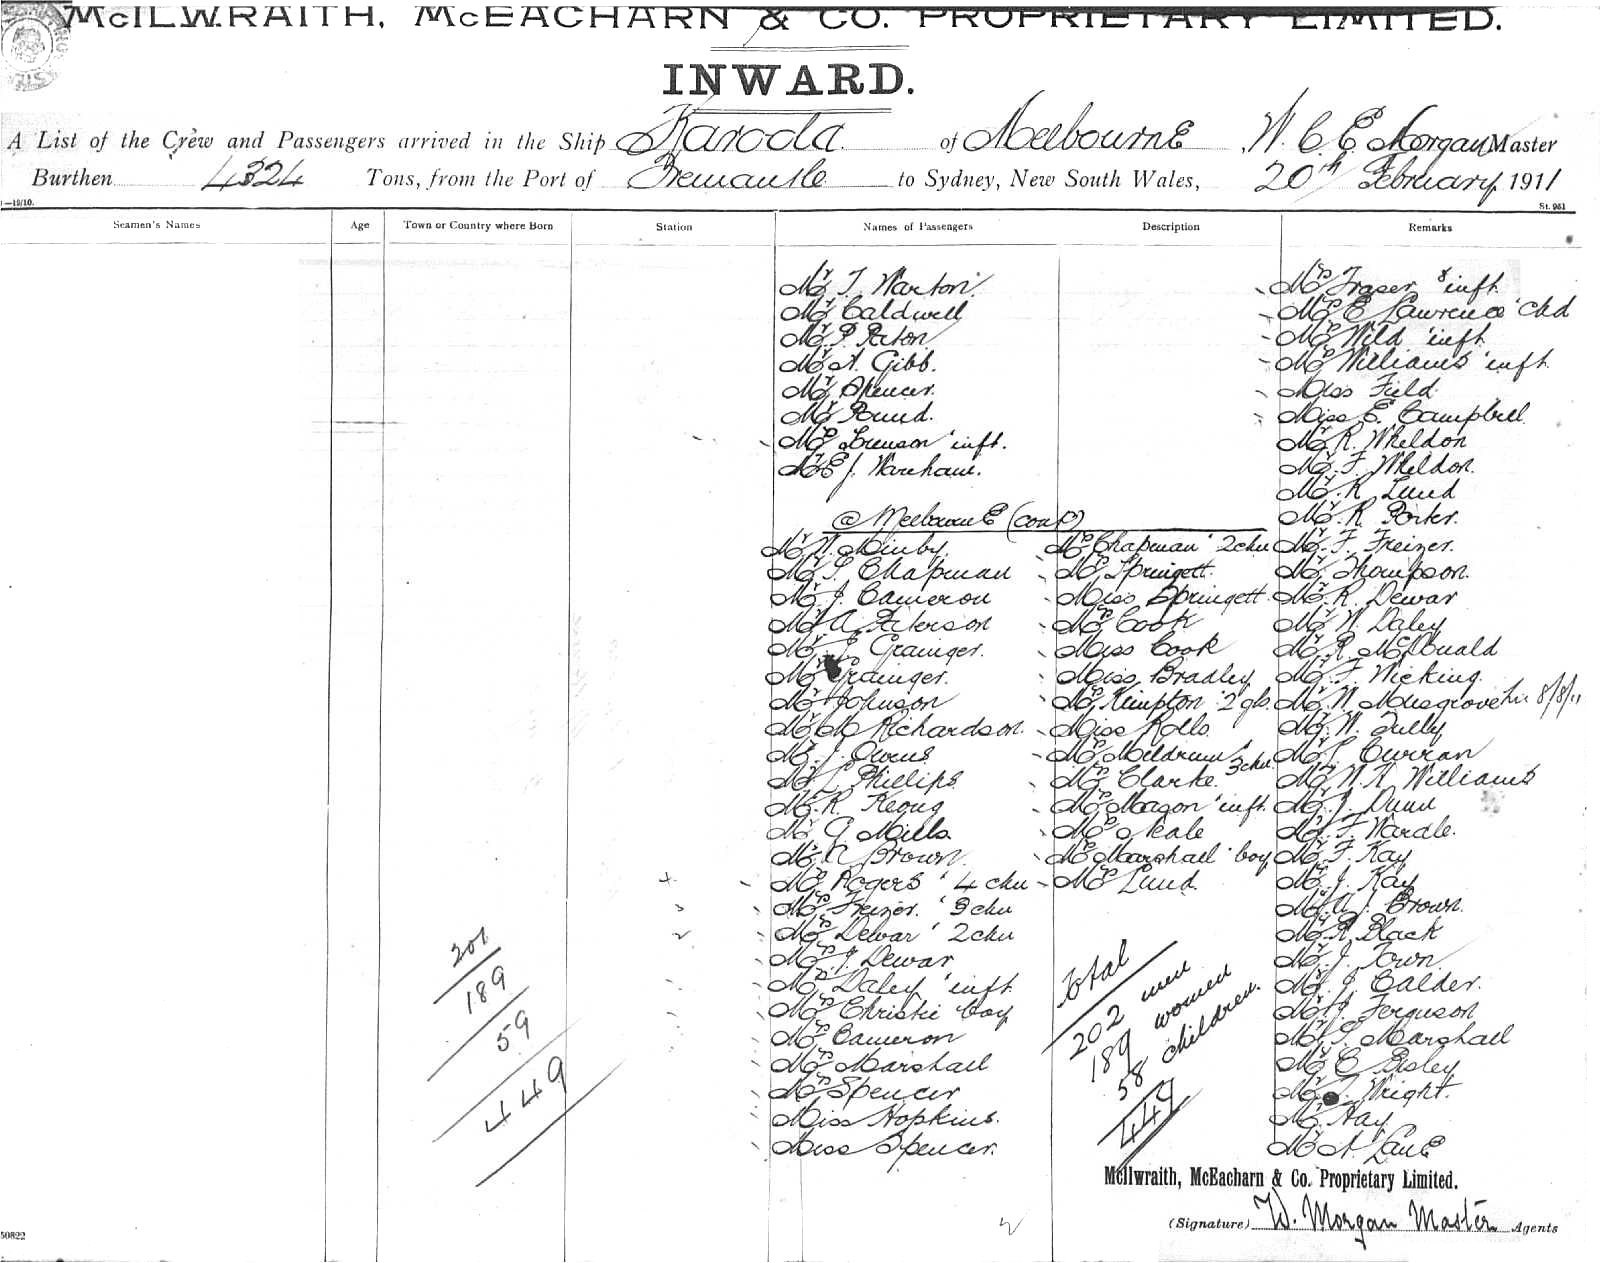 McILWRAITH, McEACHARN & CO. PROPRIETARY LIMITED.
INWARD.
A List of the Crew and Passengers arrived in the Ship Karoola of Melbourne W. C. E. Morgan Master
Burthen 4324 Tons, from the Port of Fremantle to Sydney, New South Wales, 20th February 1911
—19/10.
St. 961
Seamen's Names Age Town or Country where Born Station Names of Passengers Description Remarks
Mr T. Warton
Mr Caldwell
Mr P. Paton
Mr A. Gibb.
Mr Spencer.
Mr Pound.
Mrs inft.
Mr E J. Wareham.
@ Melbourne (cont)
Mr W.
Mr S. Chapman
Mr J. Cameron
Mr A. Peterson
Mr Grainger.
Mr Grainger.
Mr Johnson
Mr M Richardson.
Mr J. Owens
Mr L Phillips
Mr R. Keoug
Mr G. Mills
Mr A Brown.
Mrs Rogers ' 4 chn
Mrs Freizer. ' 3 chn
Mrs Dewar ' 2 chn
Mrs J Dewar
Mrs Daley ' inft
Mrs Christie boy
Mrs Cameron
Mrs Marshall
Mrs Spencer
Miss Hopkins.
Miss Spencer.
Mrs Chapman ' 2 chn
Mrs Springett.
Miss Springett.
Mrs Cook
Miss Cook
Miss Bradley
Mrs Kimpton ' 2 gls.
Miss Rolls
Mrs Meldrum ' 3 chn
Mrs Clarke.
Mrs Mason ' inft.
Mrs Neale
Mrs Marshall ' boy
Mrs Lund.
Total
202 men
189 women
58 children.
449
Mrs Fraser & inft
Mrs E Lawrence ' chd
Mrs Wild ' inft
Mrs Williams ' inft
Miss Field
Miss E. Campbell
Mr R. Wheldon
Mr F. Wheldon.
Mr R Lund
Mr R Porter.
Mr F. Freizer.
Mr Thompson.
Mr R. Dewar
Mr W. Daley
Mr R McDonald
Mr F. Wicking
Mr W Musgrove 8/8/11
Mr W. Tully
Mr Curran
Mr W. A Williams
Mr J. Dunn
Mr F. Wardle.
Mr F. Kay
Mr J. Kay
Mr A. J. Brown.
Mr R Black
Mr J. Town
Mr J. Calder.
Mr Ferguson
Mr S. Marshall
Mr C Bisley
Mr Wright.
Mr Hay
Mr A. Lane
201
189
59
449
McIlwraith, McEacharn & Co. Proprietary Limited.
(Signature) W. Morgan Master Agents
50822